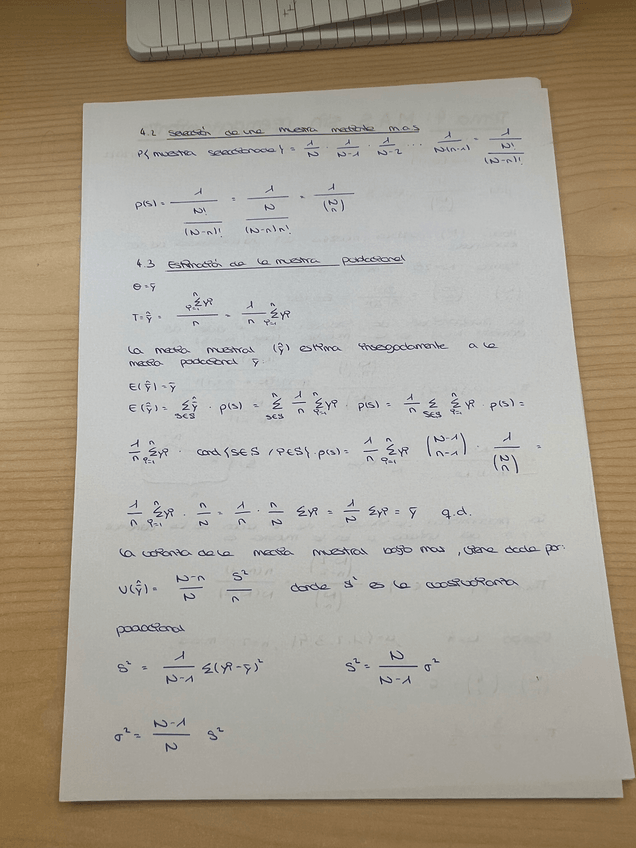 4.2 Selección de una muestra mediante m.a.s
P{muestra seleccionada} = 1/N · 1/(N-1) · 1/(N-2) ... 1/(N(n-1)) = 1/(N!/(N-n)!)
p(s) = 1/(N!/(N-n)!) = 1/(N/((N-n)!n!)) = 1/(N n)
4.3 Estimación de la muestra poblacional
θ = ȳ
T = ŷ = (Σⁿᵢ₌₁ yi)/n = 1/n Σⁿᵢ₌₁ yi
La media muestral (ŷ) estima insesgadamente a la
media poblacional ȳ.
E(ŷ) = ȳ
E(ŷ) = Σ_{s∈S} ŷ · p(s) = Σⁿ_{s∈S} 1/n Σⁿᵢ₌₁ yi · p(s) = 1/n Σ_{s∈S} Σⁿᵢ₌₁ yi · p(s) =
1/n Σⁿᵢ₌₁ yi · card{s∈S / i∈S} · p(s) = 1/n Σⁿᵢ₌₁ yi (N-1 n-1) · 1/(N n) =
1/n Σⁿᵢ₌₁ yi · n/N = 1/n · n/N Σ yi = 1/N Σ yi = ȳ q.d.
La varianza de la media muestral bajo mas, viene dada por:
V(ŷ) = (N-n)/N S²/n donde S² es la cuasivarianza
poblacional
S² = 1/(N-1) Σ(yi-ȳ)² S² = N/(N-1) σ²
σ² = (N-1)/N S²